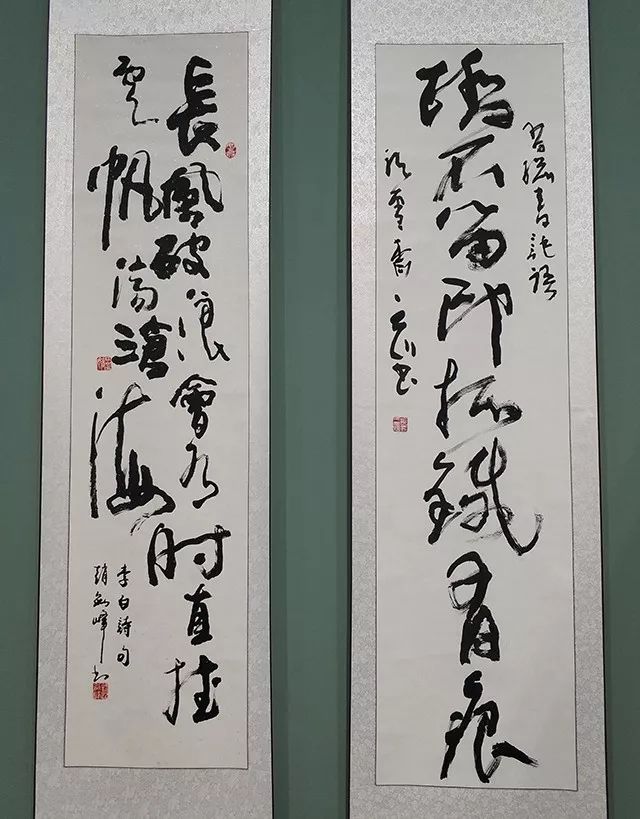 習總書記語
踏石留印抓鐵有痕
書
長風破浪會有時直挂
雲帆濟滄海
李白詩句
趙峰書